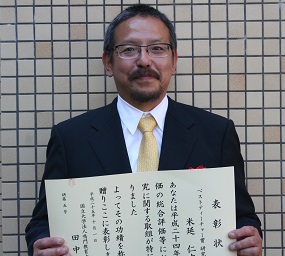 表彰状
ベストティーチャー賞 研究
米延 仁
あなたは平成二十四年
価の総合評価等に
究に関する取組が特
りました
よってその功績を称
贈りここに表彰しま
平成二十五年
国立大学法人鳴門教育
田中